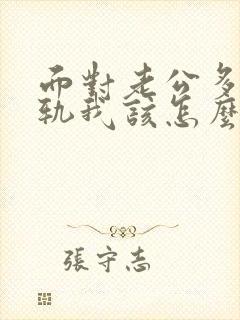 而對老公多
軌我該怎麼
張守志